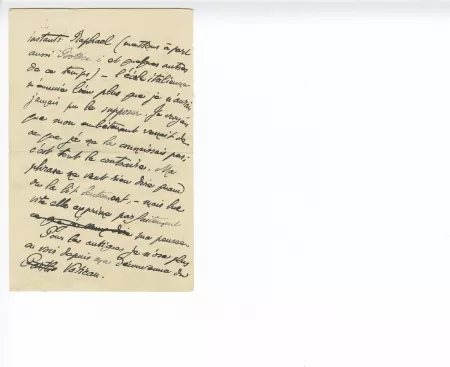 instants Raphael (mettons à part
aussi Giotto et quelques autres
de ce temps) – l'école italienne
m'ennuie bien plus que je n'aurais
jamais pu le supposer. Je croyais
que mon embêtement venait de
ce que je ne la connaissais pas;
c'est tout le contraire. Ma
phrase ne veut rien dire quand
on la lit lentement, – mais lue
vite elle exprime parfaitement
ma pensée.
Pour les antiques je n'ose plus
en vois depuis ma du
Vatican.